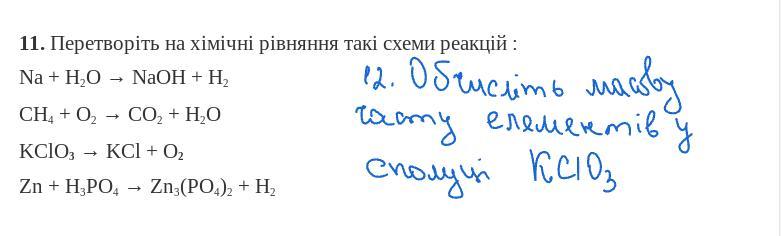 11. Перетворіть на хімічні рівняння такі схеми реакцій :
Na + H₂O → NaOH + H₂
CH₄ + O₂ → CO₂ + H₂O
KClO₃ → KCl + O₂
Zn + H₃PO₄ → Zn₃(PO₄)₂ + H₂
12. Обчисліть масову
частку елементів у
сполуці KClO₃